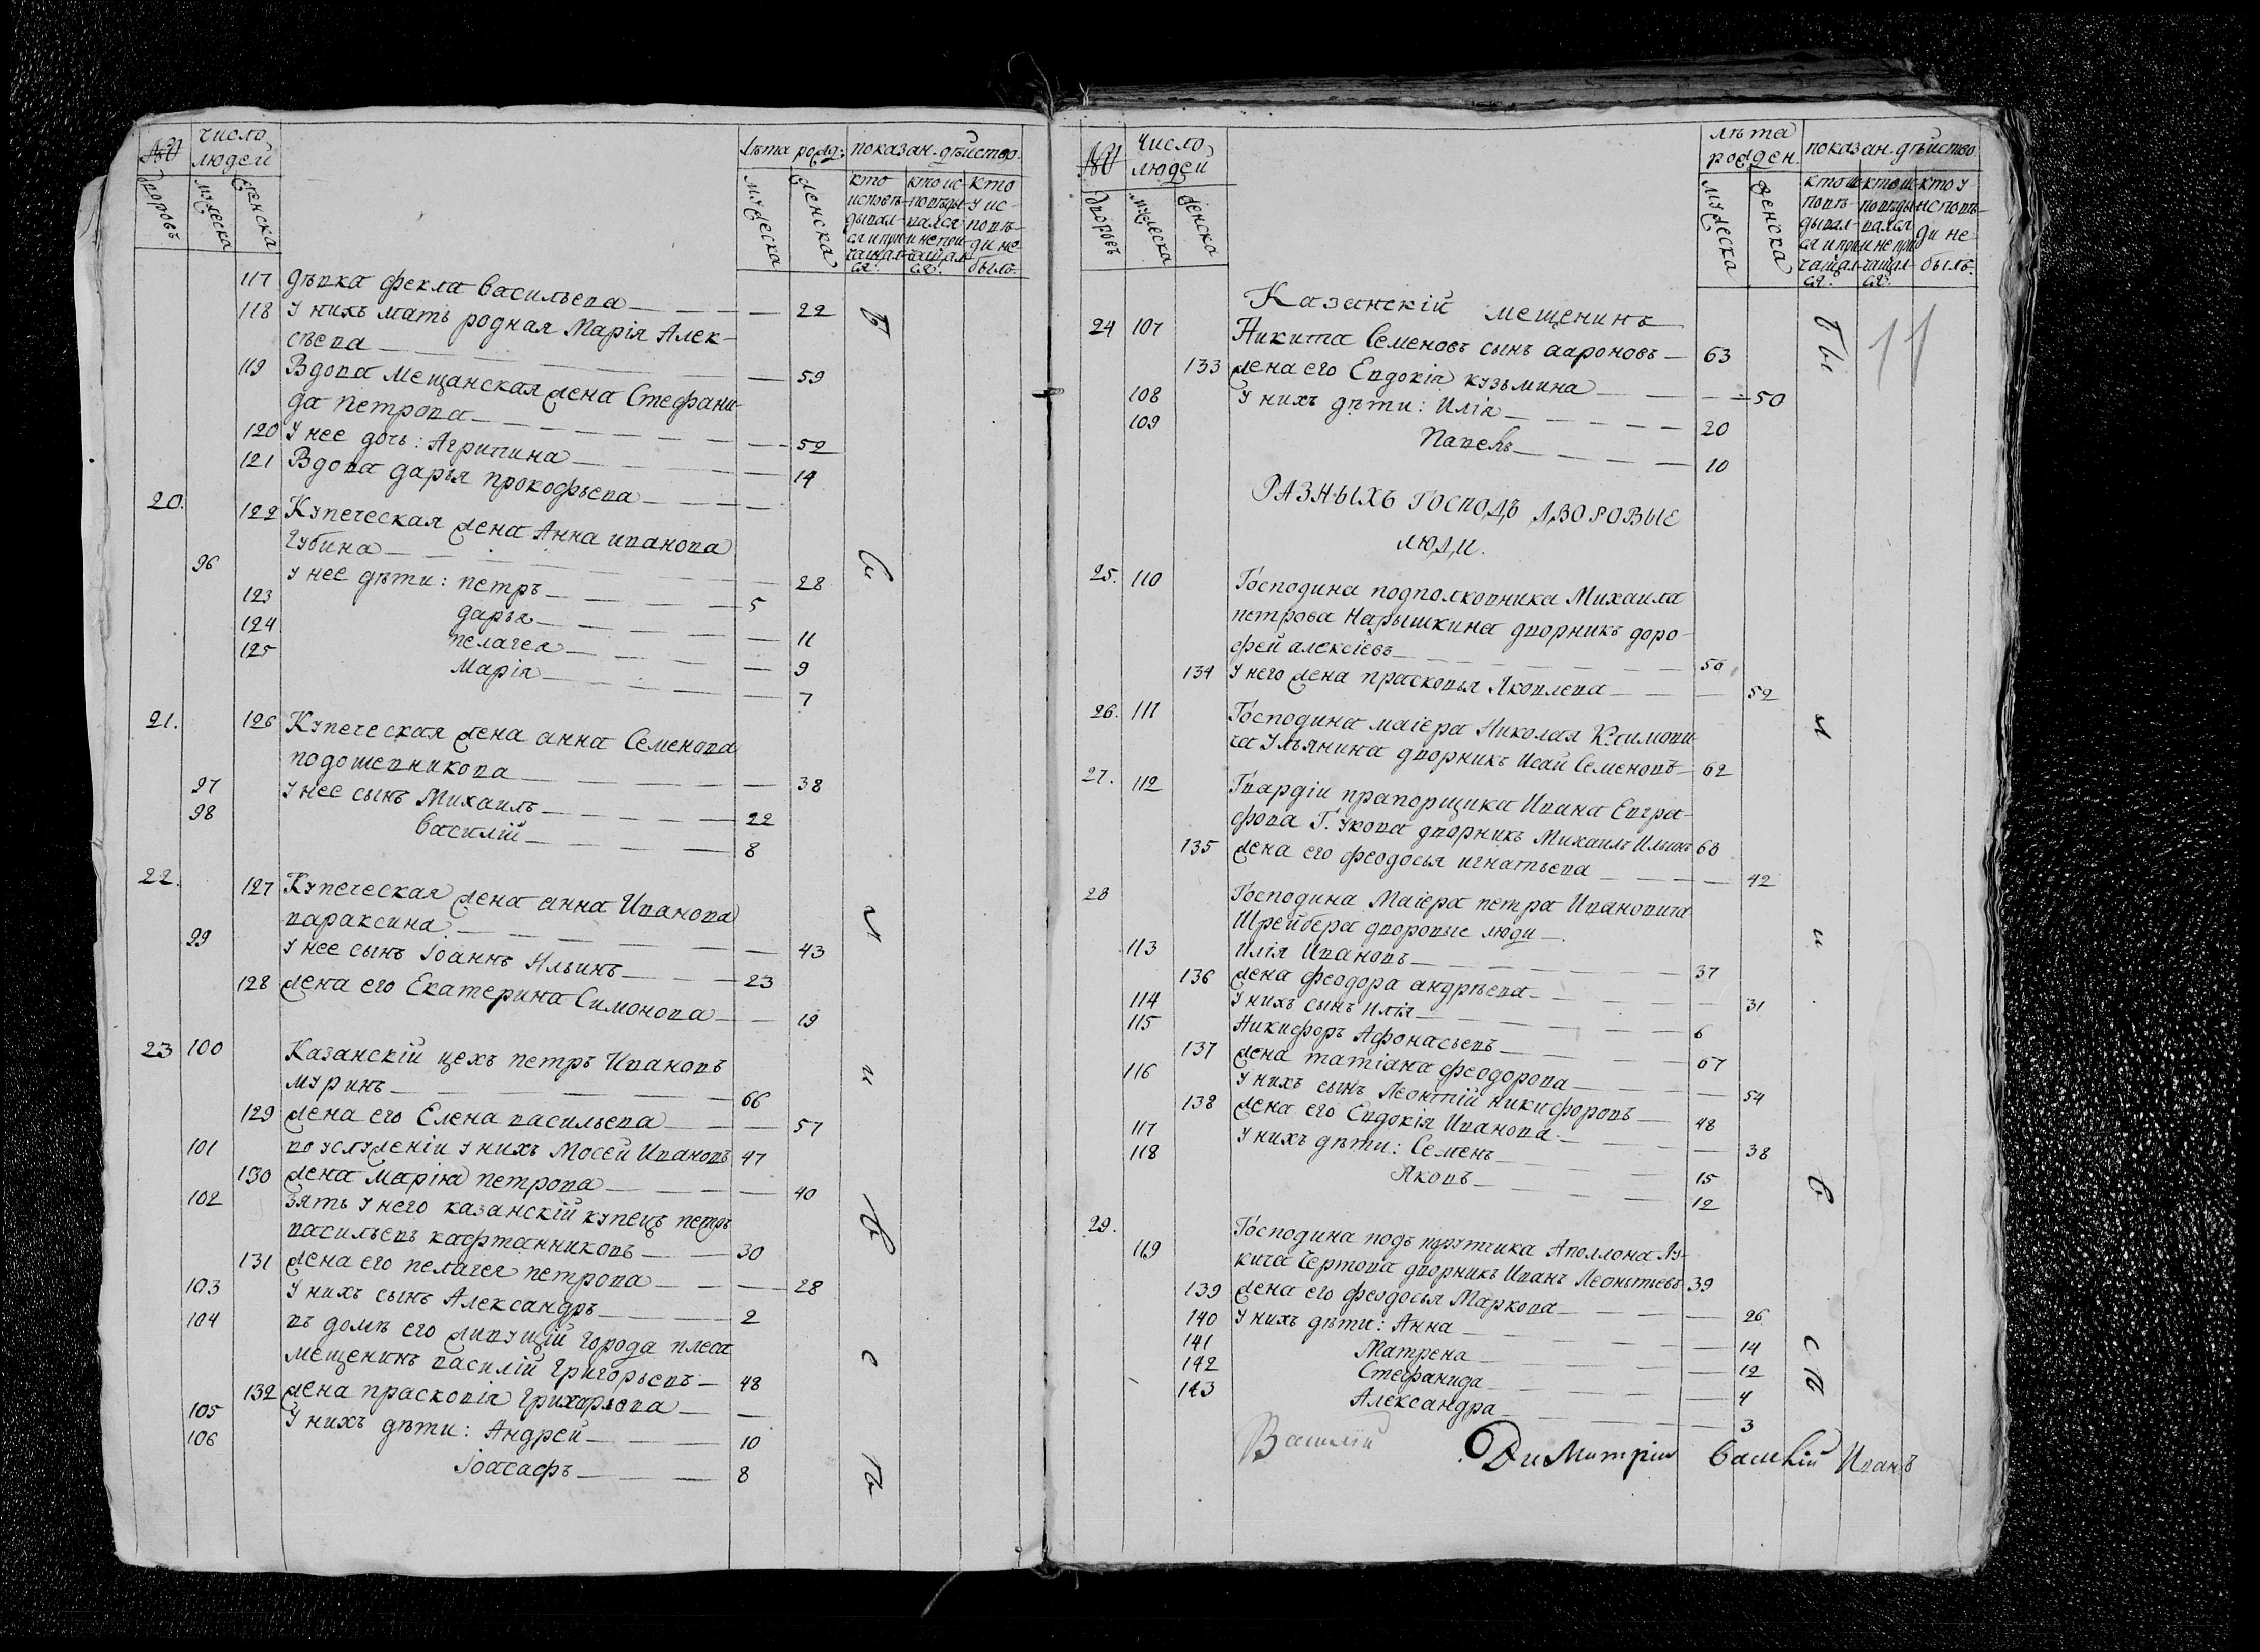 №
число людей
лѣта рожд:
показан. дѣйство.
дворовъ
мужеска
женска
мужеска
женска
кто исповѣдывался и причащался.
кто исповѣдывался и не причащался.
кто у исповѣди не былъ.
117 дѣвка Фекла Васильева — 22
118 У нихъ мать родная Марія Алек-
сѣева — 59
119 Вдова мещанская жена Стефани-
да Петрова — 52
120 У нее дочь: Агрипина — 14
121 Вдова дарья прокофьева —
20. 122 Купеческая жена Анна иванова
Губина — 28
96 У нее дѣти: петръ — 5
123 дарья — 11
124 пелагея — 9
125 Марія — 7
21. 126 Купеческая жена анна Семенова
подошевникова — 38
97 У нее сынъ Михаилъ — 22
98 Василій — 8
22. 127 Купеческая жена анна Иванова
вараксина — 43
99 У нее сынъ Іоаннъ Ильинъ — 23
128 жена его Екатерина Симонова — 19
23 100 Казанскій цехъ петръ Ивановъ
муринъ — 66
129 жена его Елена васильева — 57
101 во услуженіи у нихъ Мосей Ивановъ 47
130 жена Марія петрова — 40
102 Зять у него казанскій купецъ петръ
васильевъ кафтанниковъ — 30
131 жена его пелагея петрова — 28
103 У нихъ сынъ Александръ — 2
104 въ домѣ его живущій города плеса
мещенинъ василій Григорьевъ — 48
132 жена праскопія —
105 У нихъ дѣти: Андрей — 10
106 Іоасафъ — 8
В
с
и
в
с
№
Число людей
лѣта рожден.
показан. дѣйство
дворовъ
мужеска
женска
мужеска
женска
кто исповѣдывался и причащался.
кто исповѣдывался и не причащался.
кто у исповѣди не былъ.
11
Казанскій мещенинъ
24 107 Никита Семеновъ сынъ аароновъ — 63
133 жена его Евдокія кузьмина — 50
108 У нихъ дѣти: Илія — 20
109 Павелъ — 10
РАЗНЫХЪ ГОСПОДЪ ДВОРОВЫЕ
ЛЮДИ.
25. 110 Господина подполковника Михаила
петрова Нарышкина дворникъ доро-
фей алексіевъ — 56
134 У него жена прасковья Яковлева — 52
26. 111 Господина маіера Николая Климови-
ча Ульянина дворникъ Исай Семеновъ — 62
27. 112 Гвардіи прапорщика Ивана Евгра-
фова Г. укова дворникъ Михаилъ Ильинъ 63
135 жена его феодосья игнатьева — 42
28 Господина Маіера петра Ивановича
Шрейбера дворовые люди —
113 Илія Ивановъ — 37
136 жена феодора андрѣева — 31
114 У нихъ сынъ Илія — 6
115 Никифоръ Афонасьевъ — 67
137 жена татіана феодорова — 54
116 У нихъ сынъ Леонтій никифоровъ — 48
138 жена его Евдокія Иванова — 38
117 У нихъ дѣти: Семенъ — 15
118 Яковъ — 12
29. Господина подъ порутчика Аполлона Лу-
119 кича Чертова дворникъ Иванъ Леонтьевъ 39
139 жена его феодосья Маркова — 26
140 У нихъ дѣти: Анна — 14
141 Матрена — 12
142 Стефанида — 4
143 Александра — 3
бы
л
и
в
с
Василій Димитрій Василій Иванъ